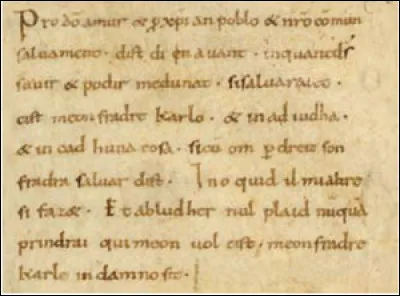 Pro dō amur & ꝑ xp̄ian poblo & nr̄o cōmun
saluament. dist di en auant. inquantds̄
sauir & podir medunat. sisaluaraieo.
cist meon fradre karlo. & in ad iudha.
& in cad huna cosa. sicū om ꝑ dreit son
fradra saluar dist. Ino quid il mialtre
si faz&. Et abludher nul plaid nūquā
prindrai qui meon uol cist. meonfradre
karle in damno sit.